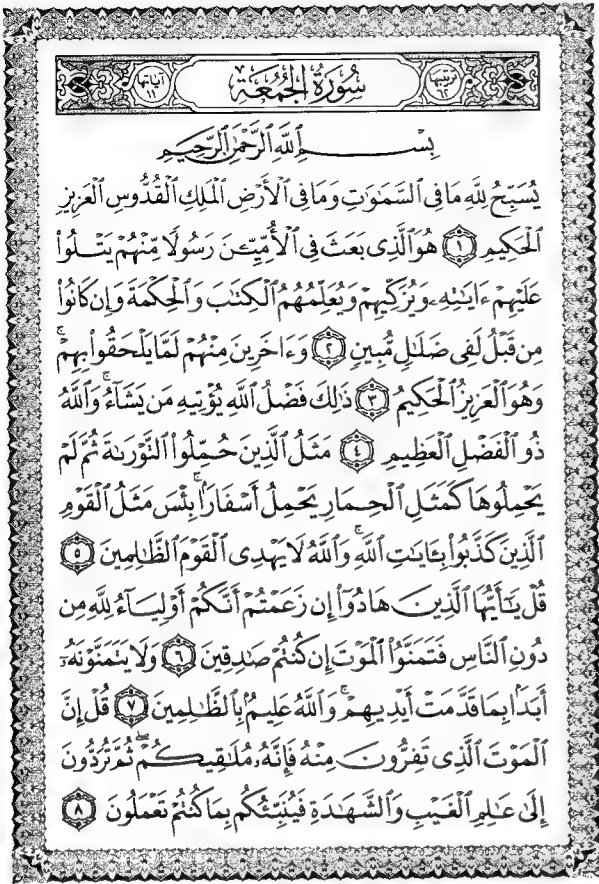 ترتيبها ٦٢ سُورَةُ الجُمُعَةِ آياتها ١١
بِسْمِ ٱللَّهِ ٱلرَّحْمَٰنِ ٱلرَّحِيمِ
يُسَبِّحُ لِلَّهِ مَا فِى ٱلسَّمَٰوَٰتِ وَمَا فِى ٱلْأَرْضِ ٱلْمَلِكِ ٱلْقُدُّوسِ ٱلْعَزِيزِ
ٱلْحَكِيمِ ١ هُوَ ٱلَّذِى بَعَثَ فِى ٱلْأُمِّيِّۦنَ رَسُولًا مِّنْهُمْ يَتْلُوا۟
عَلَيْهِمْ ءَايَٰتِهِۦ وَيُزَكِّيهِمْ وَيُعَلِّمُهُمُ ٱلْكِتَٰبَ وَٱلْحِكْمَةَ وَإِن كَانُوا۟
مِن قَبْلُ لَفِى ضَلَٰلٍ مُّبِينٍ ٢ وَءَاخَرِينَ مِنْهُمْ لَمَّا يَلْحَقُوا۟ بِهِمْ ۚ
وَهُوَ ٱلْعَزِيزُ ٱلْحَكِيمُ ٣ ذَٰلِكَ فَضْلُ ٱللَّهِ يُؤْتِيهِ مَن يَشَآءُ ۚ وَٱللَّهُ
ذُو ٱلْفَضْلِ ٱلْعَظِيمِ ٤ مَثَلُ ٱلَّذِينَ حُمِّلُوا۟ ٱلتَّوْرَىٰةَ ثُمَّ لَمْ
يَحْمِلُوهَا كَمَثَلِ ٱلْحِمَارِ يَحْمِلُ أَسْفَارًۢا ۚ بِئْسَ مَثَلُ ٱلْقَوْمِ
ٱلَّذِينَ كَذَّبُوا۟ بِـَٔايَٰتِ ٱللَّهِ ۚ وَٱللَّهُ لَا يَهْدِى ٱلْقَوْمَ ٱلظَّٰلِمِينَ ٥
قُلْ يَٰٓأَيُّهَا ٱلَّذِينَ هَادُوٓا۟ إِن زَعَمْتُمْ أَنَّكُمْ أَوْلِيَآءُ لِلَّهِ مِن
دُونِ ٱلنَّاسِ فَتَمَنَّوُا۟ ٱلْمَوْتَ إِن كُنتُمْ صَٰدِقِينَ ٦ وَلَا يَتَمَنَّوْنَهُۥٓ
أَبَدًۢا بِمَا قَدَّمَتْ أَيْدِيهِمْ ۚ وَٱللَّهُ عَلِيمٌۢ بِٱلظَّٰلِمِينَ ٧ قُلْ إِنَّ
ٱلْمَوْتَ ٱلَّذِى تَفِرُّونَ مِنْهُ فَإِنَّهُۥ مُلَٰقِيكُمْ ۖ ثُمَّ تُرَدُّونَ
إِلَىٰ عَٰلِمِ ٱلْغَيْبِ وَٱلشَّهَٰدَةِ فَيُنَبِّئُكُم بِمَا كُنتُمْ تَعْمَلُونَ ٨